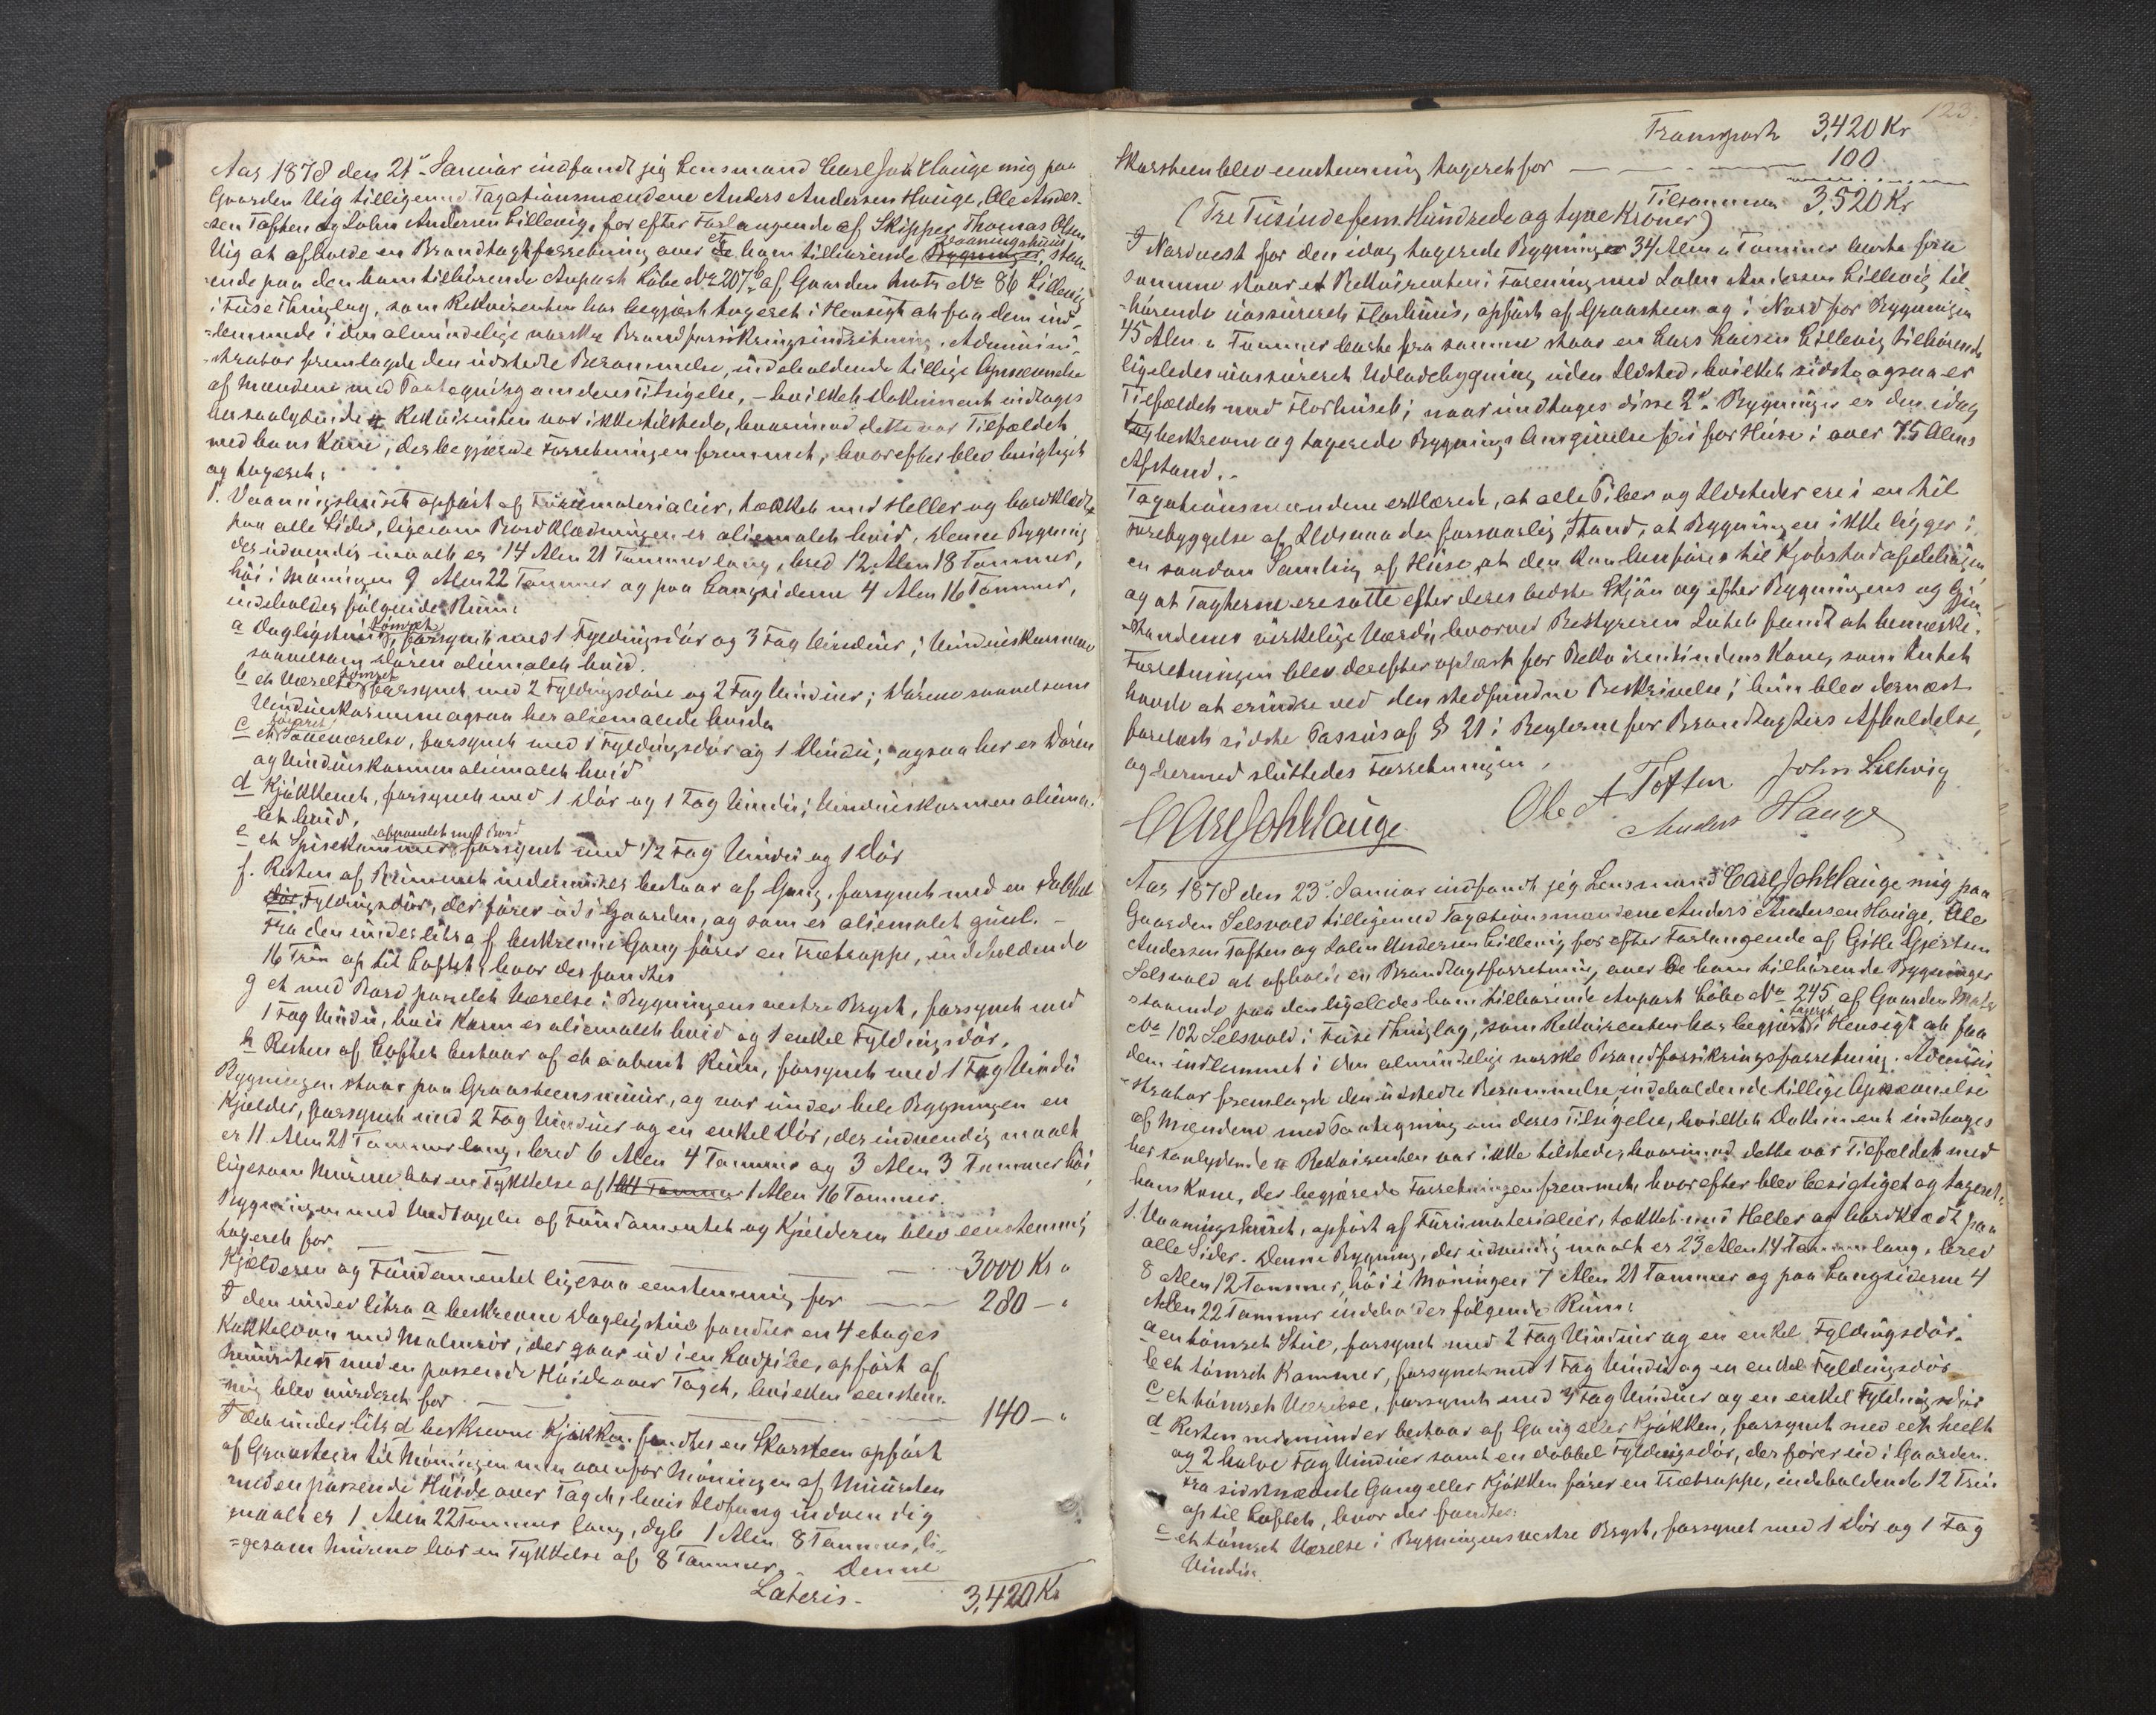 Aar 1878 den 21de Januar indfandt jeg Lensmand Carl Joh Hauge mig paa
Gaarden Vig tilligemed Taxationsmændene Anders Andersen Hauge, Ole Ander-
sen Toften og John Andersen Lillevig, for efter Forlangende af Skipper Thomas Olsen
Vig at afholde en Brandtaxtforretning over et ham tilhørende Vaaningshuus, staa-
ende paa den ham tilhørende Anpart Løbe No 207b af Gaarden Matr No 86 Lillevig
i Fuse Thinglag, som Rekvirenten har begjært taxeret i Hensigt at faa dem ind-
lemmede i den almindelige norske Brandforsikringsindretning. Admini-
strator fremlagde den udstedte Berammelse, indeholdende tillige Opnævnelse
af Mændene med Paategning om deres Tilsigelse, - hvilket Dokument indtages
her saalydende # Rekvirenten var ikke tilstede, hvorimod dette var Tilfældet
med hans Kone, der begjærede Forretningen fremmet, hvorefter blev besigtiget
og taxeret:
1. Vaaningshuset opført af Furumaterialier, tækket med Heller og bordklædt
paa alle Sider, ligesom Bordklædningen er oliemalet hvid, denne Bygning
der udvendig maalt er 14 Alen 21 Tommer lang, bred 12 Alen 18 Tommer,
høi i Møningen 9 Alen 22 Tommer og paa Langsiderne 4 Alen 16 Tommer,
indeholder følgende Rum:
a Dagligstue, tømret, forsynet med 1 Fyldingsdør og 3 Fag Vinduer; Vindueskarmene
saavelsom Døren oliemalet hvid.
b et Værelse tømret forsynet med 2 Fyldingsdøre og 2 Fag Vinduer; Dørene saavelsom
Vindueskarmene ogsaa her oliemalede hvide
c et tømret Soveværelse, forsynet med 1 Fyldingsdør og 1 Vindu; ogsaa her er Døren
og Vindueskarmen oliemalet hvid
d Kjøkkenet, forsynet med 1 Dør og 1 Fag Vindu; Vindueskarmen oliema-
let hvid.
e et Spisekammer, afpanelet med Bord forsynet med 1/2 Fag Vindu og 1 Dør
f. Resten af Rummet nedenunder bestaar af Gang, forsynet med en dobbel
Fyldingsdør, der fører ud i Gaarden, og som er oliemalet guul. -
Fra den under litra f beskrevne Gang fører en Trætrappe, indeholdende
16 Trin op til Loftet, hvor der fandtes
g et med Bord panelet Værelse i Bygningens vestre Bryst, forsynet med
1 Fag Vindu, hvis Karm er oliemalet hvid og 1 enkel Fyldingsdør.
h Resten af Loftet bestaar af et aabent Rum, forsynet med 1 Fag Vindu
Bygningen staar paa Graasteensmuur, og var under hele Bygningen en
Kjelder, forsynet med 2 Fag Vinduer og en enkel Dør, der indvendig maalt
er 11 Alen 21 Tommer lang, bred 6 Alen 4 Tommer og 3 Alen 3 Tommer høi,
ligesom Murene har en Tykkelse af 1 Alen 16 Tommer.
Bygningen med Undtagelse af Fundamentet og Kjelderen blev eenstemmig
taxeret for — — — 3000 Kr "
Kjælderen og Fundamentet ligesaa eenstemmig for — — 280 — "
I den under litra a beskrevne Dagligstue fandtes en 4 etages
Kakkelovn med Malmrør, der gaar ud i en Lodpibe, opført af
Muursten med en passende Høide over Taget, hvilken eenstem-
mig blev vurderet for — — — 140 — "
I det under litr d beskrevne Kjøkken fandtes en Skorsteen opført
af Graasteen til Møningen men ovenfor Møningen af Muursten
med en passende Høide over Taget, hvis Ildfang udvendig
maalt er 1 Alen 22 Tommer lang, dyb 1 Alen 8 Tommer, li-
gesom Murene har en Tykkelse af 8 Tommer. Denne
Lateris - 3,420 Kr
123.
Transport 3,420 Kr
Skorsteen blev eenstemmig taxeret for — — — 100
Tilsammen 3,520 Kr
(Tre Tusinde fem Hundrede og tyve Kroner)
I Nordvest for den idag taxerede Bygning 34 Alen " Tommer borte fra
samme staar et Rekvirenten i Forening med John Andersen Lillevig til-
hørende uassureret Florhuus, opført af Graasteen og i Nord for Bygningen
45 Alen " Tommer borte fra samme staar en Lars Larsen Lillevig tilhørende
ligeledes uassureret Udladebygning uden Ildsted, hvilket sidste ogsaa er
Tilfældet med Florhuset; naar undtages disse 2de Bygninger er den idag
beskrevne og taxerede Bygnings Omgivelse fri for Huse i over 75 Alens
Afstand. -
Taxationsmændene erklærede, at alle Piber og Ildsteder ere i en til
Forebyggelse af Ildsvaade forsvarlig Stand, at Bygningen ikke ligger i
en saadan Samling af Huse, at den kan henføres til Kjøbstadafdelingen
og at Taxterne ere satte efter deres bedste Skjøn og efter Bygningens og Gjen-
standenes virkelige Værdi, hvorved Bestyreren Intet fandt at bemærke.
Forretningen blev derefter oplæst for Rekvirentindens Kone, som Intet
havde at erindre ved den stedfundne Beskrivelse; hun blev dernæst
forelæst sidste Passus af § 21 i Reglerne for Brandtaxters Afholdelse,
og hermed sluttedes Forretningen.
Carl Joh Hauge Ole A Toften John Lillevig
Anders Hauge
Aar 1878 den 23de Januar indfandt jeg Lensmand Carl Joh Hauge mig paa
Gaarden Selsvold tilligemed Taxationsmændene Anders Andersen Hauge, Ole
Andersen Toften og John Andersen Lillevig for efter Forlangende af Gitle Gjertsen
Selsvold at afholde en Brandtaxtforretning over de ham tilhørende Bygninger
staaende paa den ligeledes ham tilhørende Anpart Løbe No 245 af Gaarden Matr
No 102 Selsvold i Fuse Thinglag, som Rekvirenten har begjært taxeret i Hensigt at faa
dem indlemmet i den almindelige norske Brandforsikringsforretning. Admini-
strator fremlagde den udstedte Berammelse, indeholdende tillige Opnævnelse
af Mændene med Paategning om deres Tilsigelse, hvilket Dokument indtages
her saalydende # Rekvirenten var ikke tilstede, hvorimod dette var Tilfældet med
hans Kone, der begjærede Forretningen fremmet, hvorefter blev besigtiget og taxeret:
1. Vaaningshuset, opført af Furumaterialier, tækket med Heller og bordklædt paa
alle Sider. Denne Bygning, der udvendig maalt er 23 Alen 14 Tommer lang, bred
8 Alen 12 Tommer, høi i Møningen 7 Alen 21 Tommer og paa Langsiderne 4
Alen 22 Tommer indeholder følgende Rum:
a en tømret Stue, forsynet med 2 Fag Vinduer og en enkel Fyldingsdør.
b et tømret Kammer, forsynet med 1 Fag Vindu og en enkel Fyldingsdør
c et tømret Værelse, forsynet med 3 Fag Vinduer og en enkel Fyldingsdør
d Resten nedenunder bestaar af Gang eller Kjøkken, forsynet med eet heelt
og 2 halve Fag Vinduer samt en dobbel Fyldingsdør, der fører ud i Gaarden.
Fra sidstnævnte Gang eller Kjøkken fører en Trætrappe, indeholdende 12 Trin
op til Loftet, hvor der fandtes:
e et tømret Værelse i Bygningens vestre Bryst, forsynet med 1 Dør og 1 Fag
Vindu.